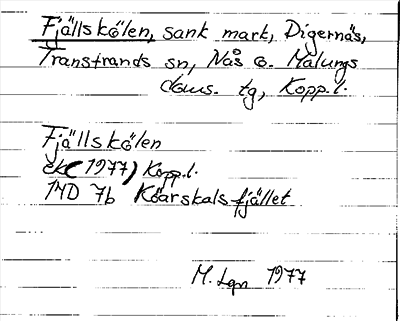 Fjällskölen, sank mark, Digernäs,
Transtrands sn, Nås o. Malungs
doms. tg, Kopp.l.
Fjällskölen
ek (1977) Kopp.l.
14D 7b Köarskalsfjället
M. Lgn 1977